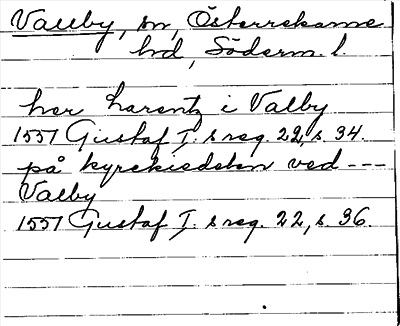 Vallby, sn, Österrekarne
hd, Söderm. l.
her Larentz i Valby
1551 Gustaf I:s reg. 22, s. 34.
på kyrekiedelen ved ---
Valby
1551 Gustaf I:s reg. 22, s. 36.